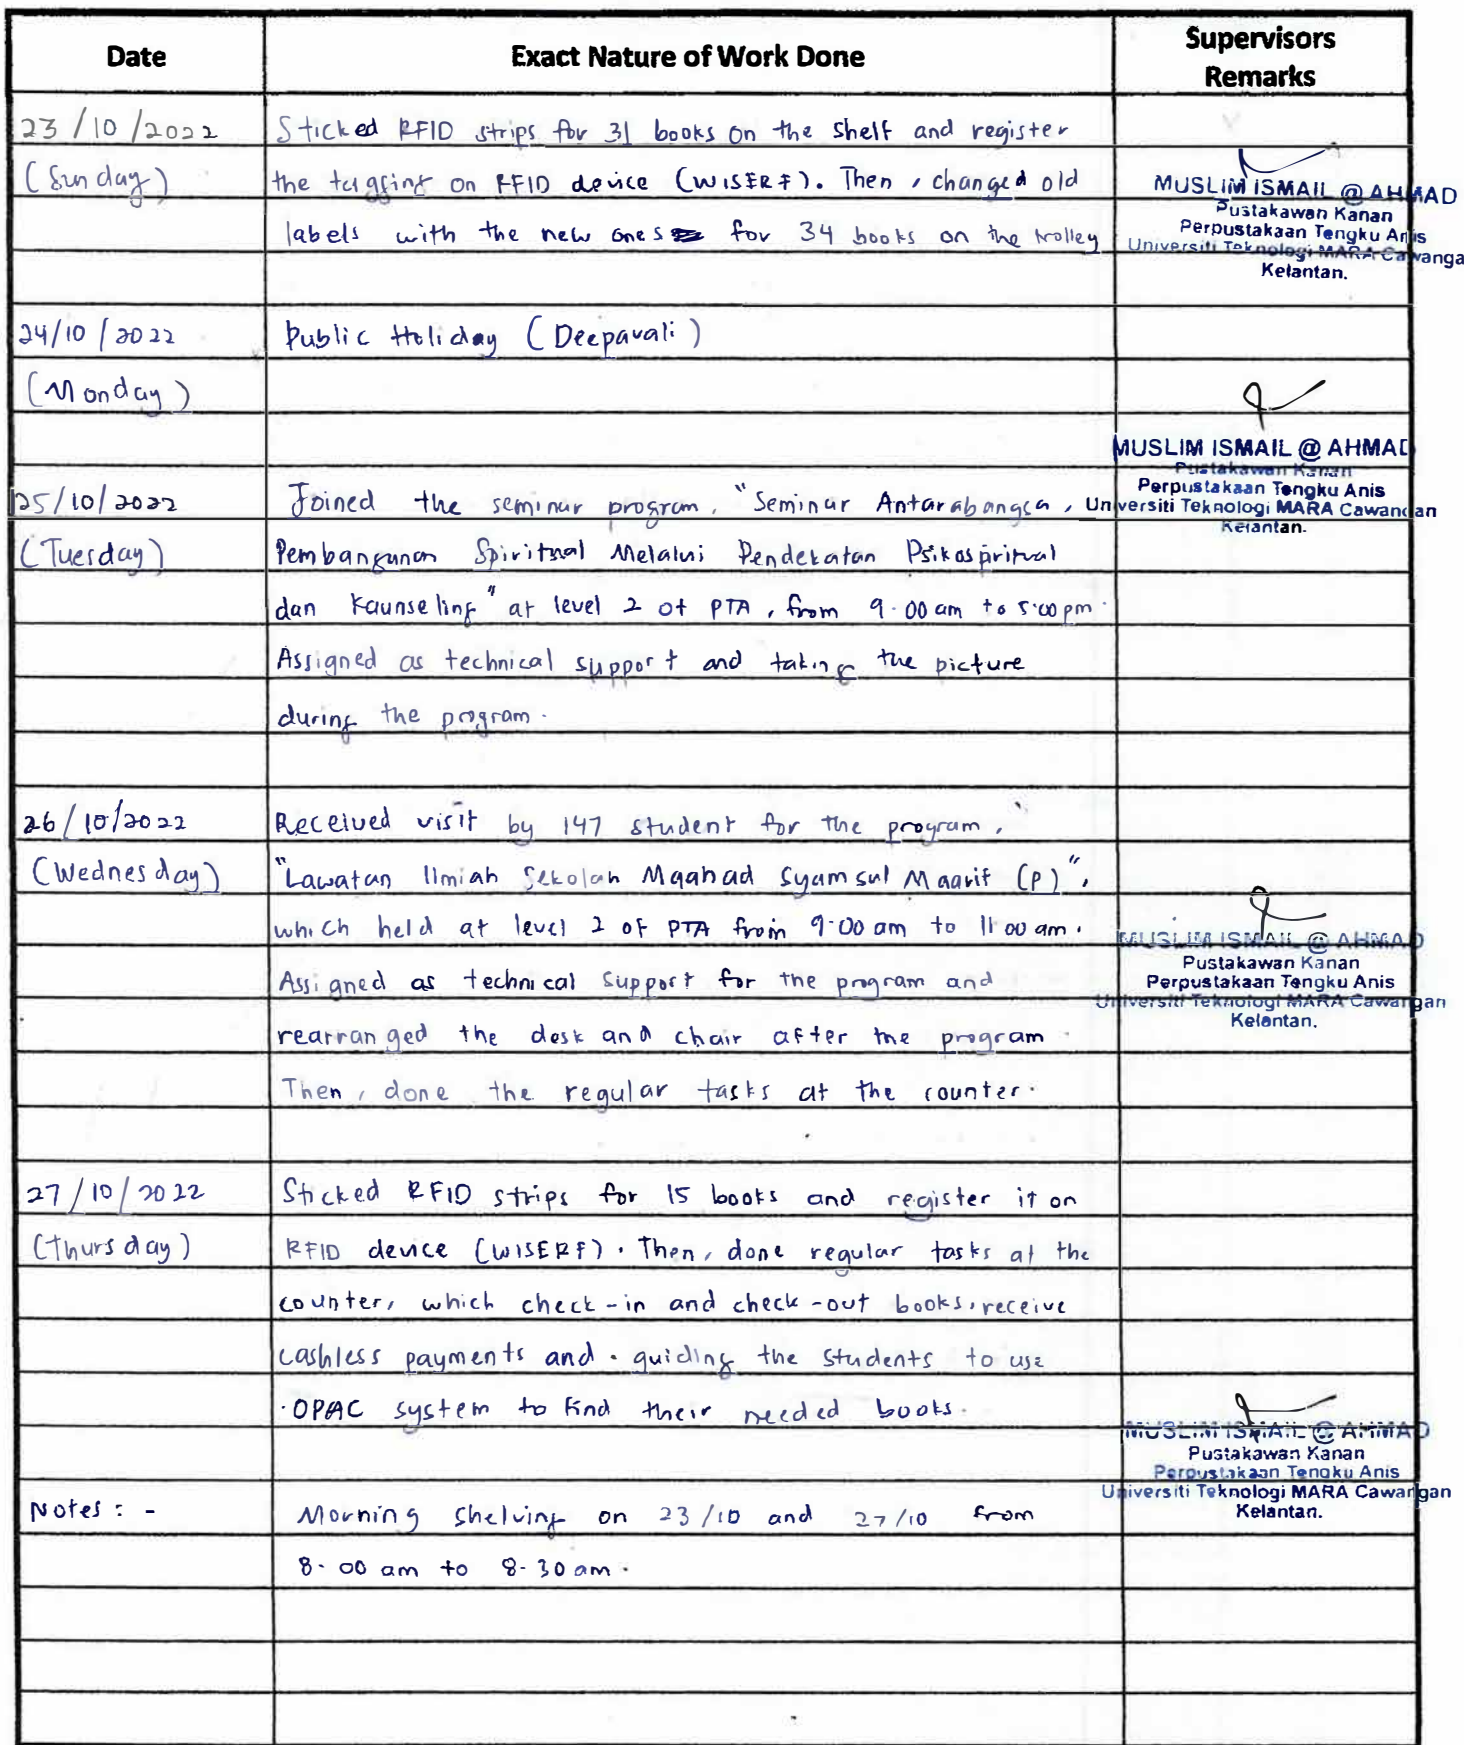 Date
Exact Nature of Work Done
Supervisors
Remarks
23/10/2022
Sticked RFID strips for 31 books on the shelf and register
(Sunday)
the tagging on RFID device (WISERF). Then, changed old
labels with the new ones for 34 books on the trolley
MUSLIM ISMAIL @ AHMAD
Pustakawan Kanan
Perpustakaan Tengku Anis
Universiti Teknologi MARA Cawanga
Kelantan.
24/10/2022
Public Holiday (Deepavali)
(Monday)
MUSLIM ISMAIL @ AHMAD
Pustakawan Kanan
Perpustakaan Tengku Anis
Universiti Teknologi MARA Cawangan
Kelantan.
25/10/2022
Joined the seminar program, "Seminar Antarabangsa,
(Tuesday)
Pembangunan Spiritual Melalui Pendekatan Psikospiritual
dan Kaunseling" at level 2 of PTA, from 9.00 am to 5.00 pm.
Assigned as technical support and taking the picture
during the program.
26/10/2022
Received visit by 147 student for the program,
(Wednesday)
"Lawatan Ilmiah Sekolah Maahad Syamsul Maarif (P)",
which held at level 2 of PTA from 9.00 am to 11.00 am.
Assigned as technical support for the program and
rearranged the desk and chair after the program.
Then, done the regular tasks at the counter.
MUSLIM ISMAIL @ AHMAD
Pustakawan Kanan
Perpustakaan Tengku Anis
Universiti Teknologi MARA Cawangan
Kelantan.
27/10/2022
Sticked RFID strips for 15 books and register it on
(Thursday)
RFID device (WISERF). Then, done regular tasks at the
counter, which check-in and check-out books, receive
cashless payments and guiding the students to use
OPAC system to find their needed books.
MUSLIM ISMAIL @ AHMAD
Pustakawan Kanan
Perpustakaan Tengku Anis
Universiti Teknologi MARA Cawangan
Kelantan.
Notes: -
Morning shelving on 23/10 and 27/10 from
8.00 am to 8.30 am.